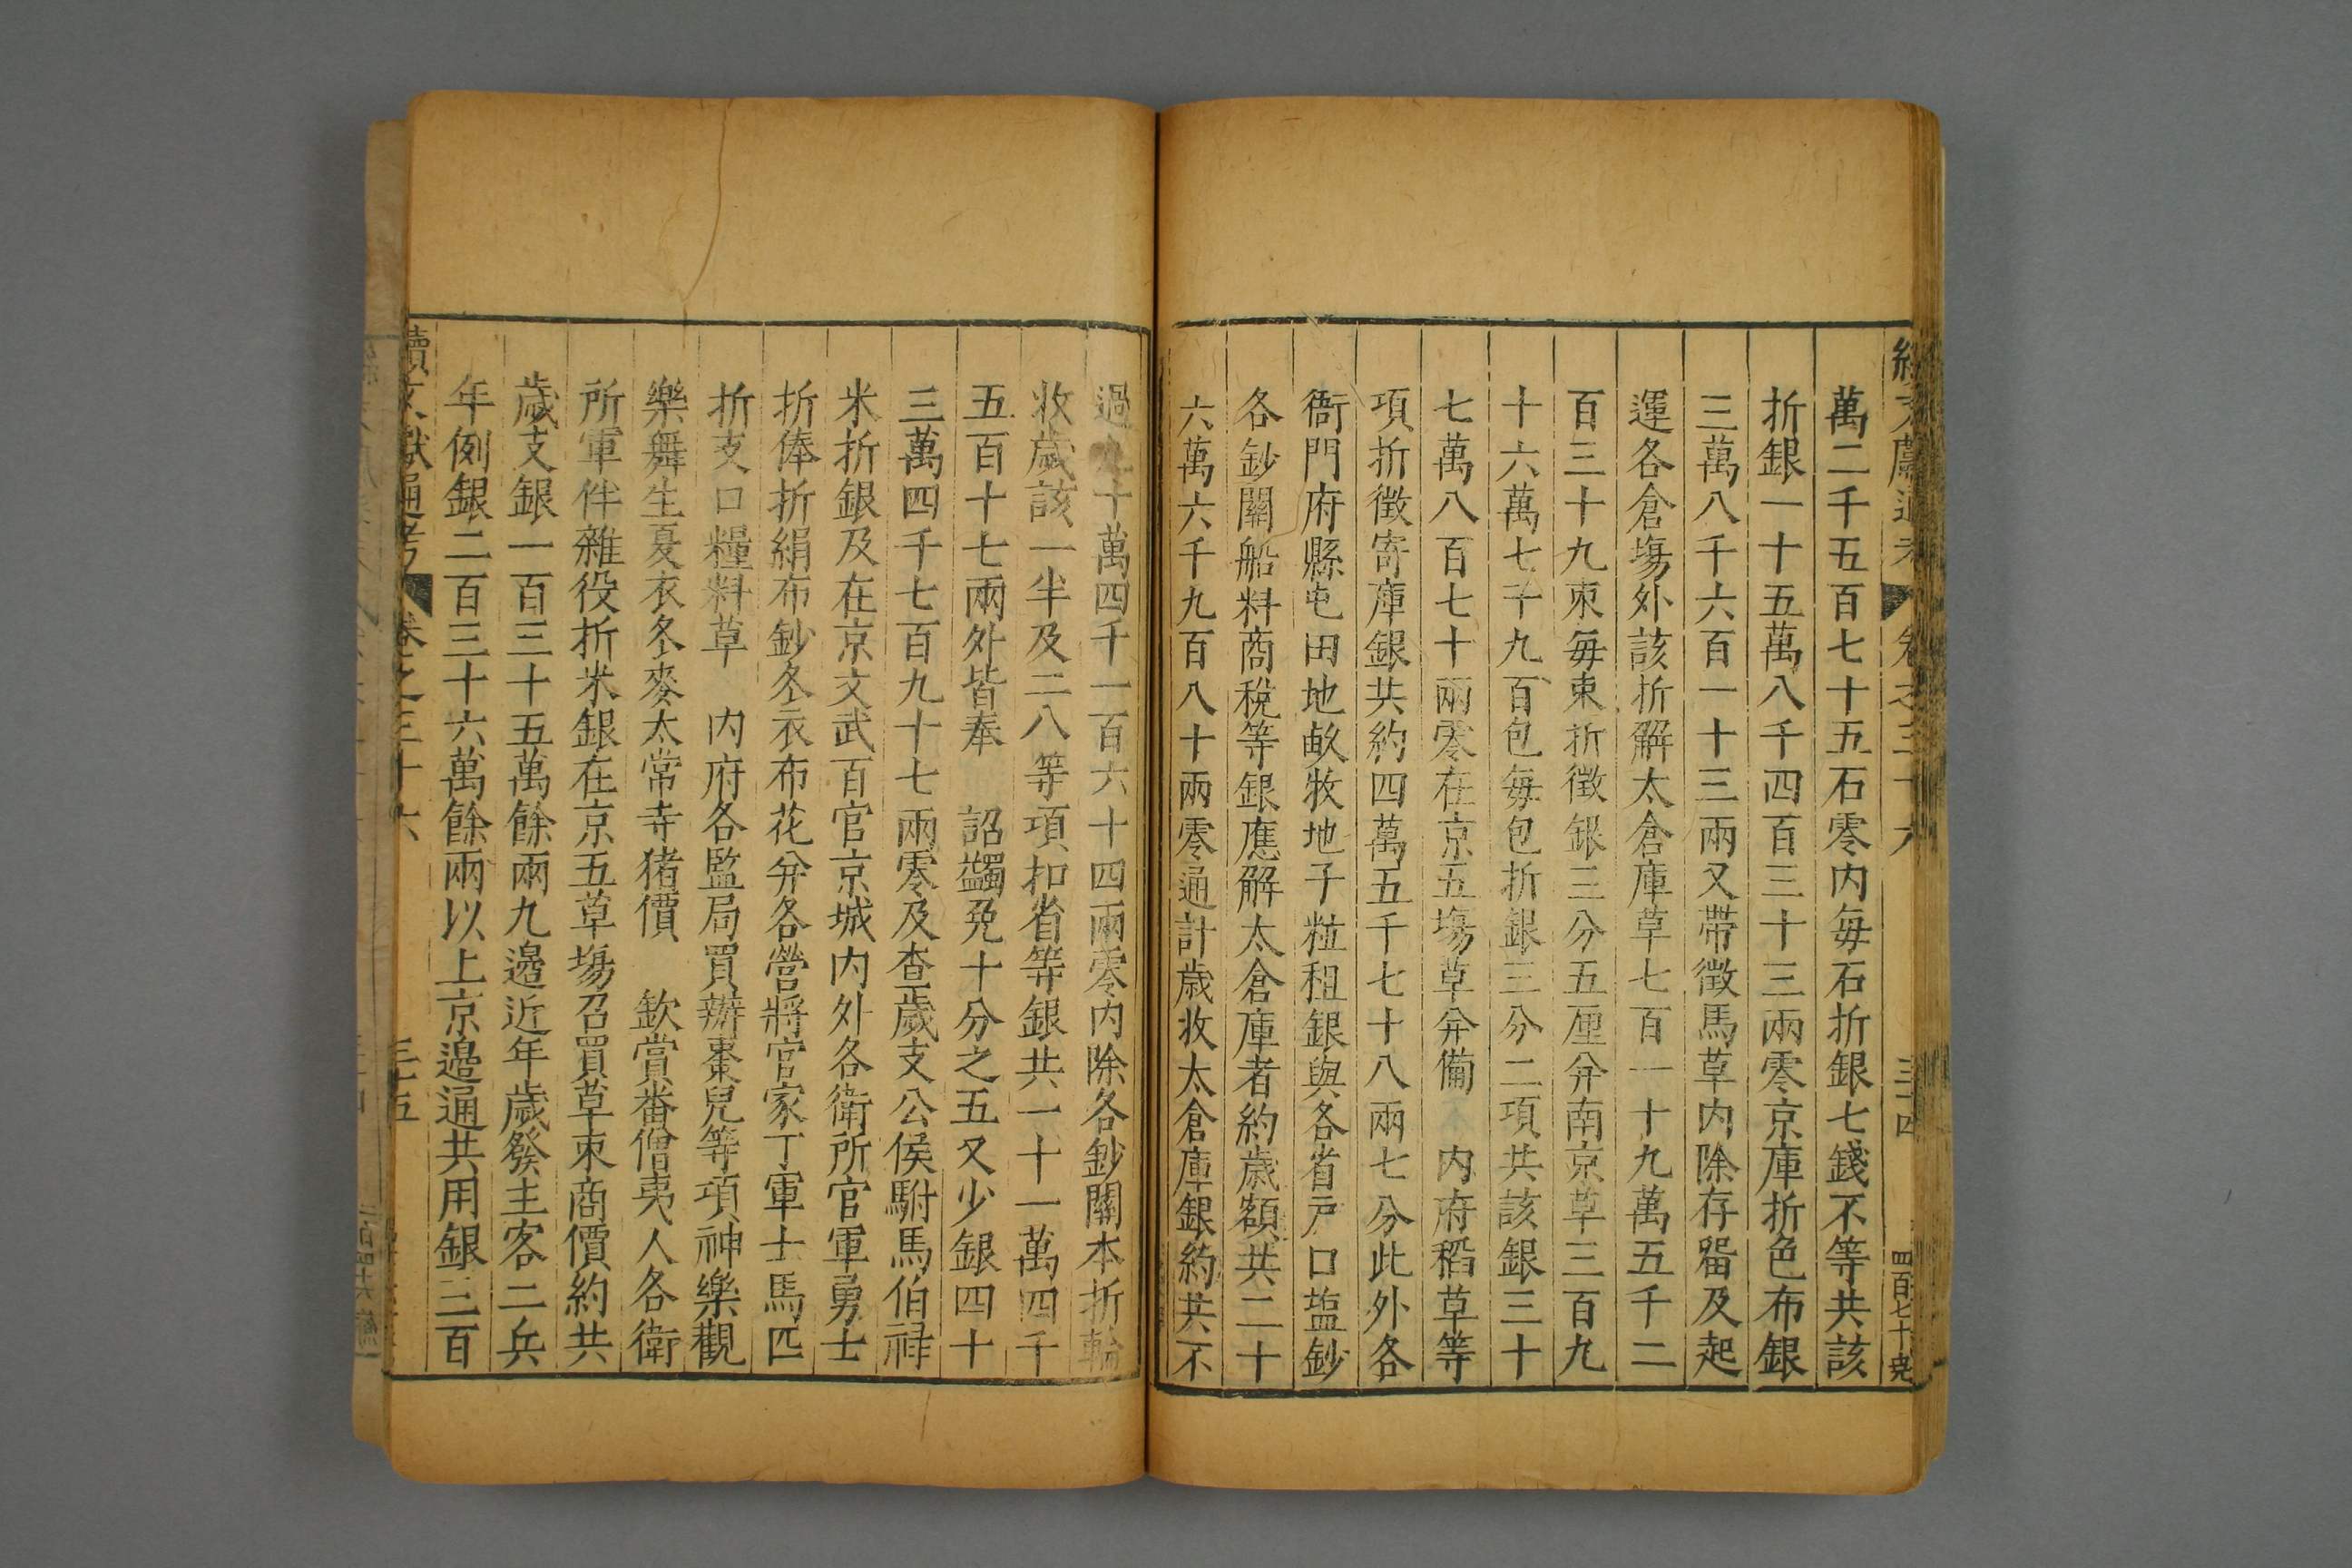 續文獻通考 卷之三十六 三十四 四百七十
萬二千五百七十五石零内每石折銀七錢不等共該
折銀一十五萬八千四百三十三兩零京庫折色布銀
三萬八千六百一十三兩又帶徵馬草内除存畱及起
運各倉塲外該折解太倉庫草七百一十九萬五千二
百三十九束每束折徵銀三分五厘并南京草三百九
十六萬七千九百包每包折銀三分二項共該銀三十
七萬八百七十兩零在京五塲草并備 内府稻草等
項折徵寄庫銀共約四萬五千七十八兩七分此外各
衙門府縣屯田地畝牧地子粒租銀與各省戸口塩鈔
各鈔關船料商稅等銀應解太倉庫者約歳額共二十
六萬六千九百八十兩零通計歳收太倉庫銀約共不
過十萬四千一百六十四兩零内除各鈔關本折輪
收歳該一半及二八等項扣省等銀共一十一萬四千
五百十七兩外皆奉 詔蠲免十分之五又少銀四十
三萬四千七百九十七兩零及查歲支公侯駙馬伯祿
米折銀及在京文武百官京城内外各衛所官軍勇士
折俸折絹布鈔冬衣布花并各營將官家丁軍士馬匹
折支口糧料草 内府各監局買辦棗兒等項神樂觀
樂舞生夏衣冬麥太常寺猪價 欽賞番僧夷人各衛
所軍伴雜役折米銀在京五草塲召買草束商價約共
歲支銀一百三十五萬餘兩九邊近年歲發主客二兵
年例銀二百三十六萬餘兩以上京邊通共用銀三百
續文獻通考 卷之三十六 三十五